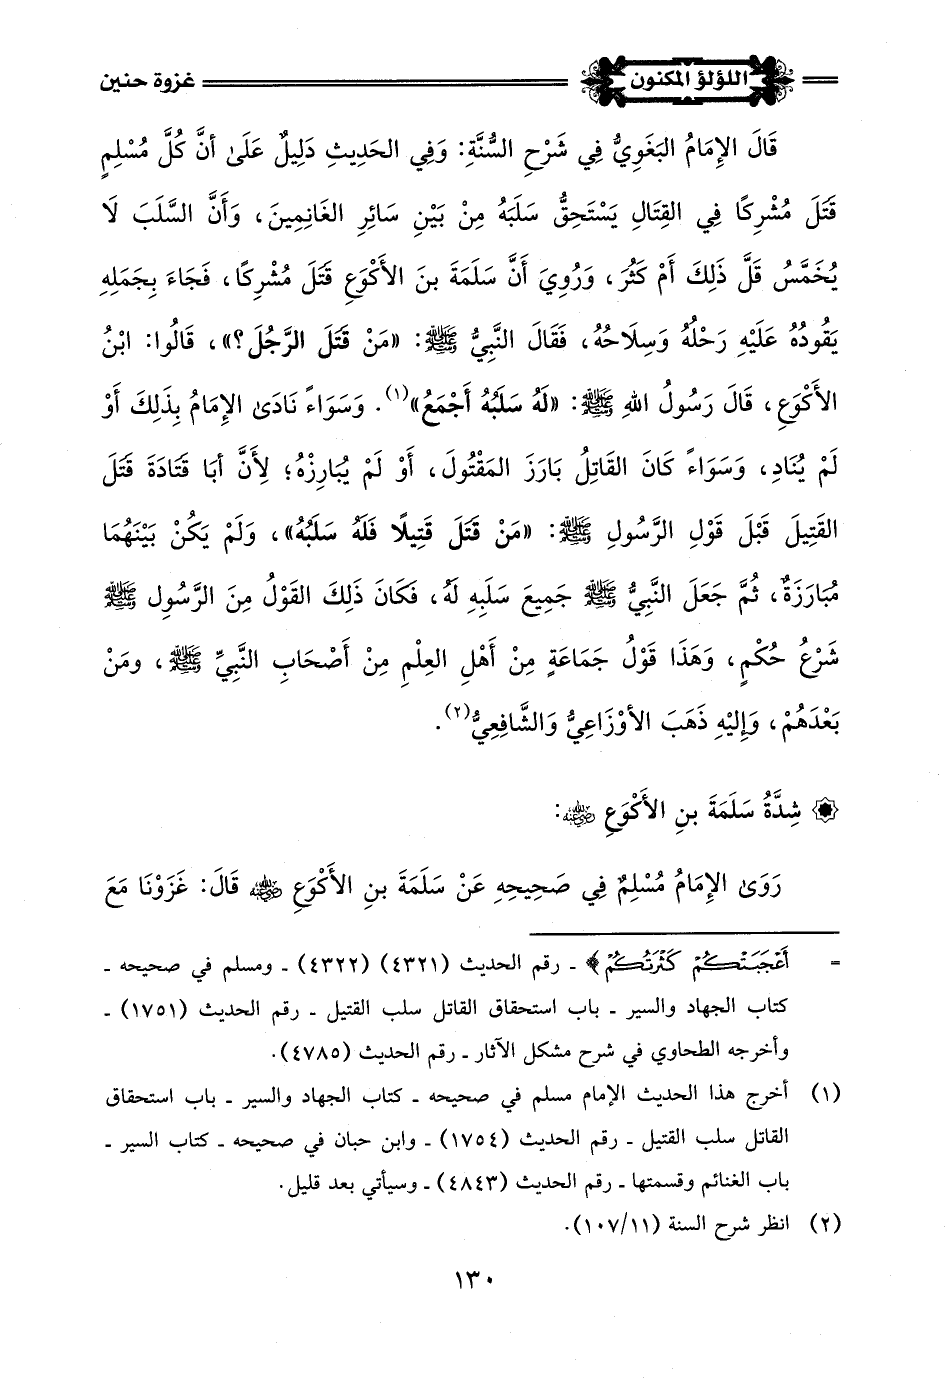 اللؤلؤ المكنون غزوة حنين
قَالَ الإِمَامُ البَغَوِيُّ فِي شَرْحِ السُّنَّةِ: وَفِي الحَدِيثِ دَلِيلٌ عَلَىٰ أَنَّ كُلَّ مُسْلِمٍ
قَتَلَ مُشْرِكًا فِي القِتَالِ يَسْتَحِقُّ سَلَبَهُ مِنْ بَيْنِ سَائِرِ الغَانِمِينَ، وَأَنَّ السَّلَبَ لَا
يُخَمَّسُ قَلَّ ذَلِكَ أَمْ كَثُرَ، وَرُوِيَ أَنَّ سَلَمَةَ بنَ الأَكْوَعِ قَتَلَ مُشْرِكًا، فَجَاءَ بِجَمَلِهِ
يَقُودُهُ عَلَيْهِ رَحْلُهُ وَسِلَاحُهُ، فَقَالَ النَّبِيُّ ﷺ: «مَنْ قَتَلَ الرَّجُلَ؟»، قَالُوا: ابْنُ
الأَكْوَعِ، قَالَ رَسُولُ اللهِ ﷺ: «لَهُ سَلَبُهُ أَجْمَعُ»(١). وَسَوَاءً نَادَىٰ الإِمَامُ بِذَلِكَ أَوْ
لَمْ يُنَادِ، وَسَوَاءً كَانَ القَاتِلُ بَارَزَ المَقْتُولَ، أَوْ لَمْ يُبَارِزْهُ؛ لِأَنَّ أَبَا قَتَادَةَ قَتَلَ
القَتِيلَ قَبْلَ قَوْلِ الرَّسُولِ ﷺ: «مَنْ قَتَلَ قَتِيلًا فَلَهُ سَلَبُهُ»، وَلَمْ يَكُنْ بَيْنَهُمَا
مُبَارَزَةٌ، ثُمَّ جَعَلَ النَّبِيُّ ﷺ جَمِيعَ سَلَبِهِ لَهُ، فَكَانَ ذَلِكَ القَوْلُ مِنَ الرَّسُولِ ﷺ
شَرْعُ حُكْمٍ، وَهَذَا قَوْلُ جَمَاعَةٍ مِنْ أَهْلِ العِلْمِ مِنْ أَصْحَابِ النَّبِيِّ ﷺ، وَمَنْ
بَعْدَهُمْ، وَإِلَيْهِ ذَهَبَ الأَوْزَاعِيُّ وَالشَّافِعِيُّ(٢).
شِدَّةُ سَلَمَةَ بنِ الأَكْوَعِ رضي الله عنه:
رَوَىٰ الإِمَامُ مُسْلِمٌ فِي صَحِيحِهِ عَنْ سَلَمَةَ بنِ الأَكْوَعِ رضي الله عنه قَالَ: غَزَوْنَا مَعَ
= أَعْجَبَتْكُمْ كَثْرَتُكُمْ﴾ ـ رقم الحديث (٤٣٢١) (٤٣٢٢) ـ ومسلم في صحيحه ـ
كتاب الجهاد والسير ـ باب استحقاق القاتل سلب القتيل ـ رقم الحديث (١٧٥١) ـ
وأخرجه الطحاوي في شرح مشكل الآثار ـ رقم الحديث (٤٧٨٥).
(١) أخرج هذا الحديث الإمام مسلم في صحيحه ـ كتاب الجهاد والسير ـ باب استحقاق
القاتل سلب القتيل ـ رقم الحديث (١٧٥٤) ـ وابن حبان في صحيحه ـ كتاب السير ـ
باب الغنائم وقسمتها ـ رقم الحديث (٤٨٤٣) ـ وسيأتي بعد قليل.
(٢) انظر شرح السنة (١٠٧/١١).
١٣٠